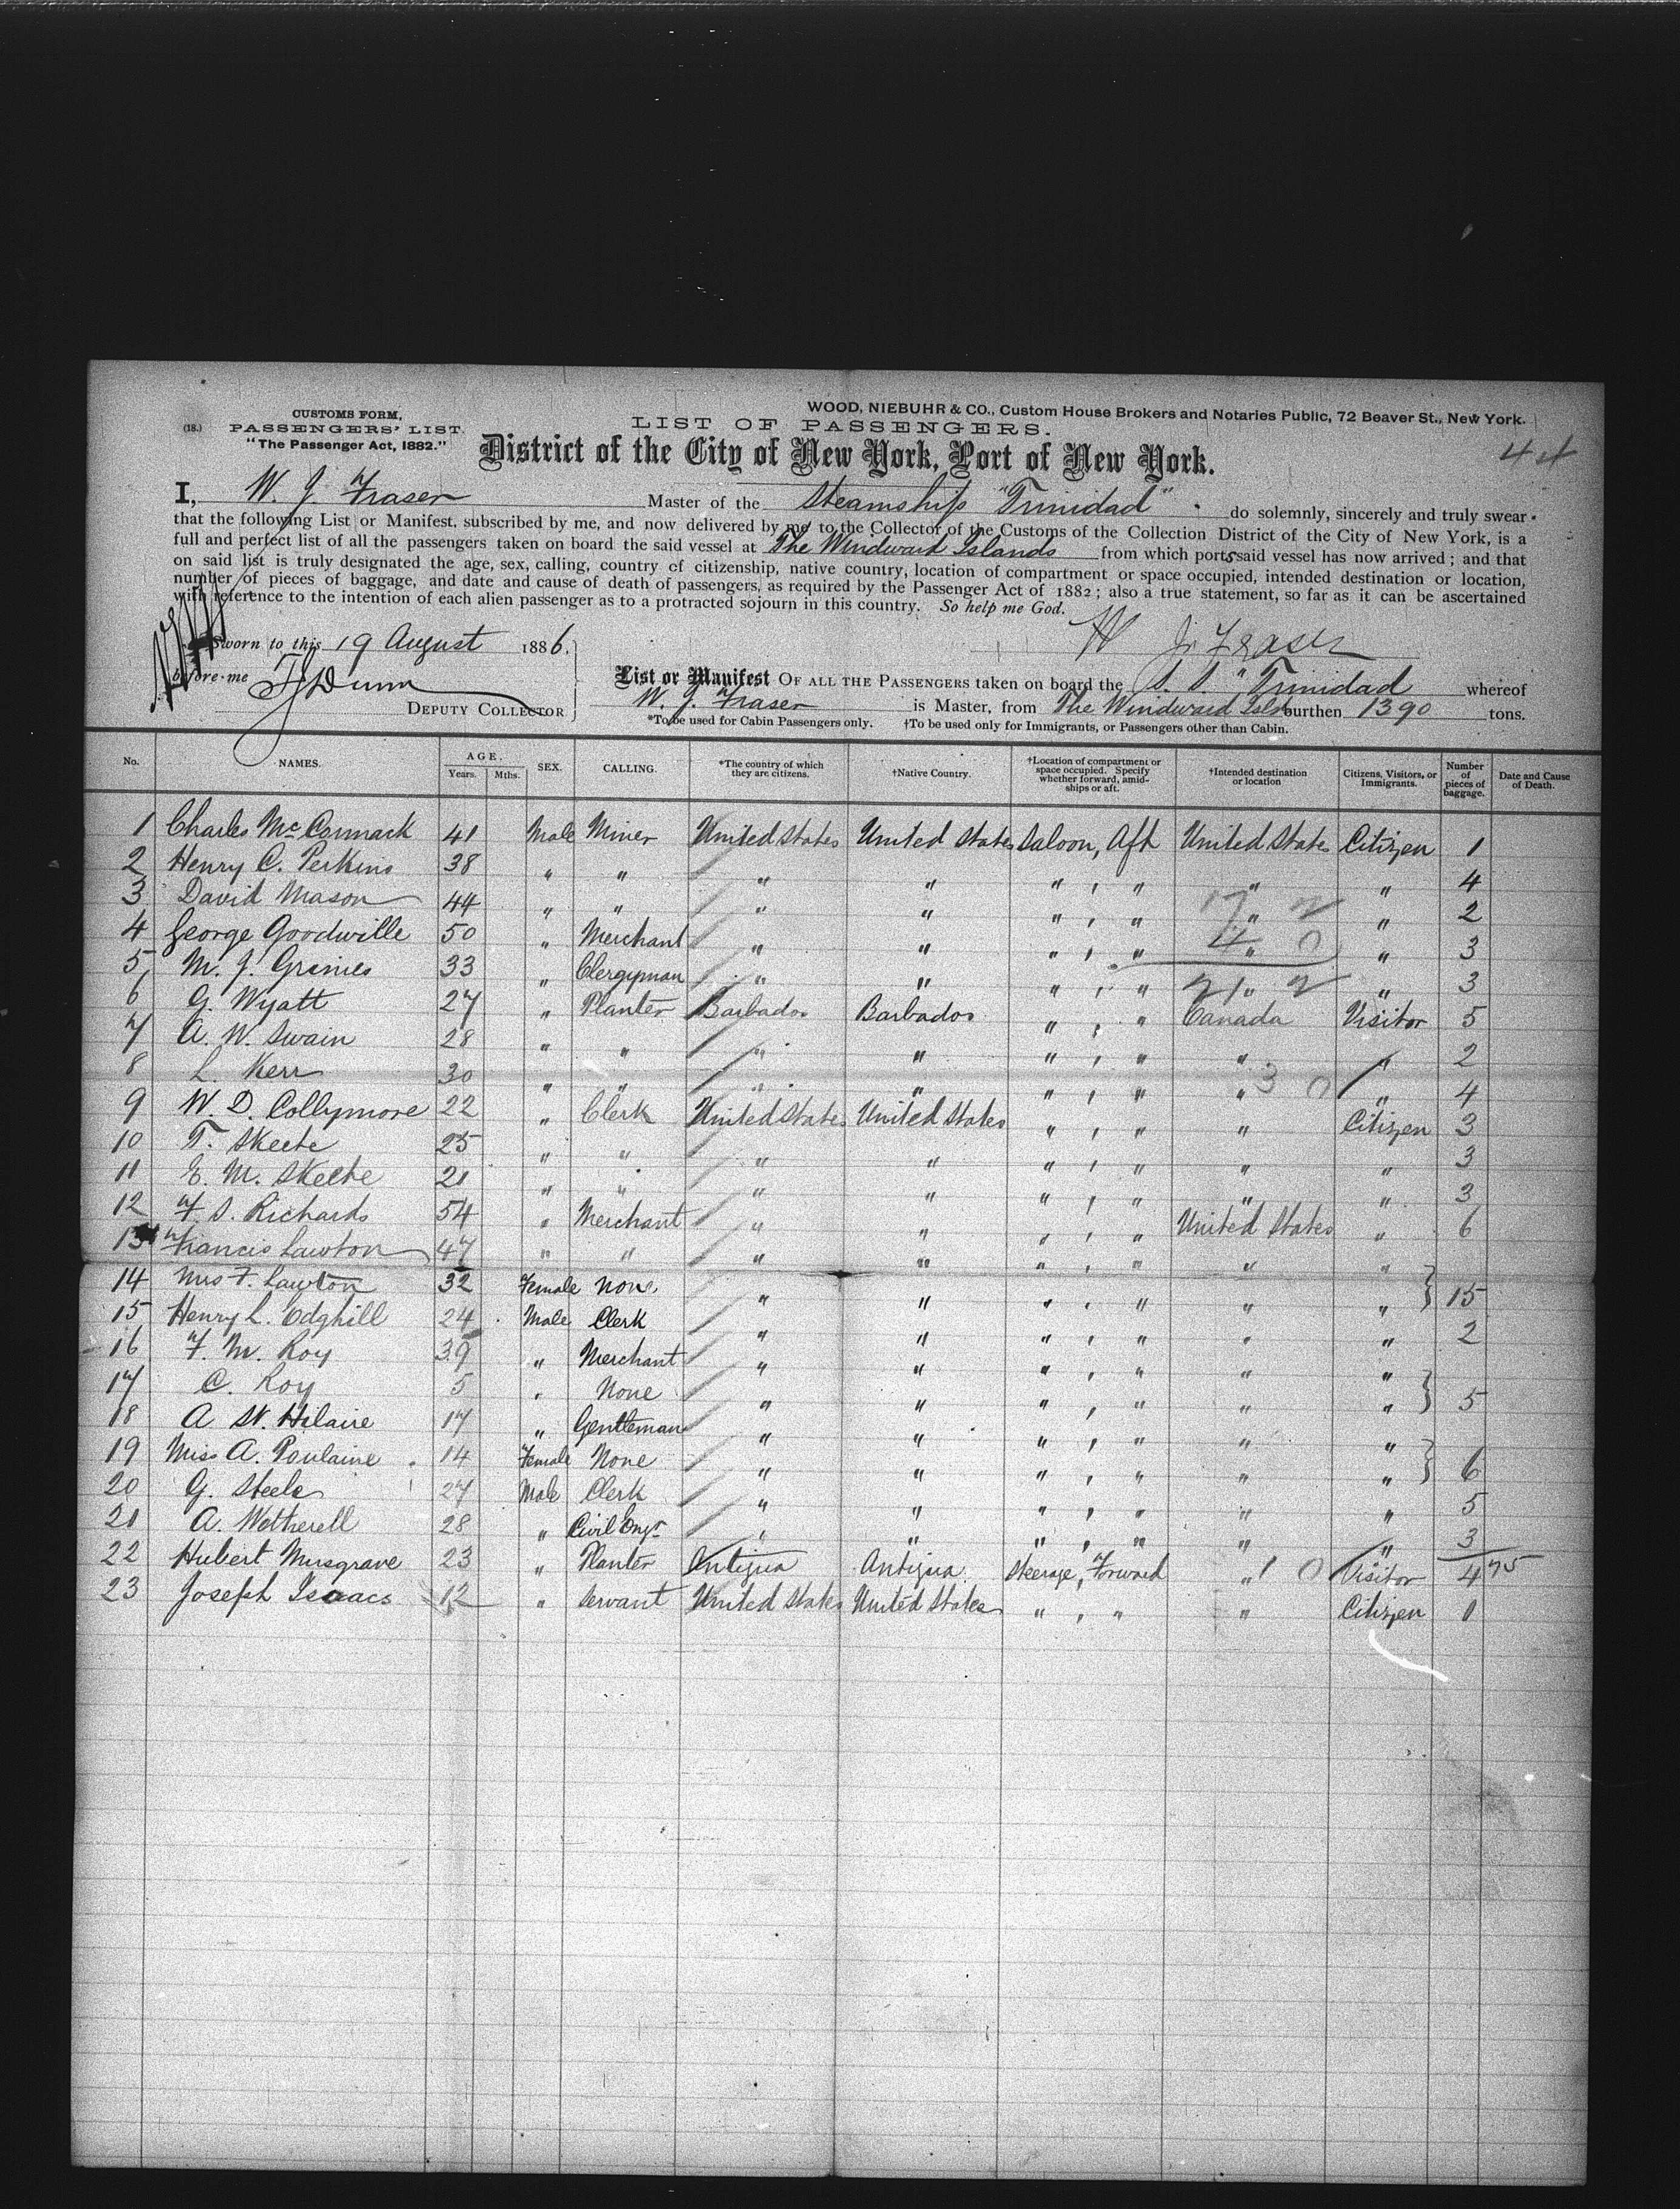 (18.)
CUSTOMS FORM,
PASSENGERS' LIST.
"The Passenger Act, 1882."
WOOD, NIEBUHR & CO., Custom House Brokers and Notaries Public, 72 Beaver St., New York.
LIST OF PASSENGERS.
District of the City of New York, Port of New York.
44
I, W. J. Fraser Master of the Steamship "Trinidad" do solemnly, sincerely and truly swear
that the following List or Manifest, subscribed by me, and now delivered by me to the Collector of the Customs of the Collection District of the City of New York, is a
full and perfect list of all the passengers taken on board the said vessel at The Windward Islands from which ports said vessel has now arrived; and that
on said list is truly designated the age, sex, calling, country of citizenship, native country, location of compartment or space occupied, intended destination or location,
number of pieces of baggage, and date and cause of death of passengers, as required by the Passenger Act of 1882; also a true statement, so far as it can be ascertained
with reference to the intention of each alien passenger as to a protracted sojourn in this country. So help me God.
Sworn to this 19 August 1886.
W. J. Fraser
before me
DEPUTY COLLECTOR
List or Manifest OF ALL THE PASSENGERS taken on board the S. S. "Trinidad whereof
W. J. Fraser is Master, from The Windward Isls burthen 1390 tons.
*To be used for Cabin Passengers only. †To be used only for Immigrants, or Passengers other than Cabin.
No. NAMES. AGE. Years. Mths. SEX. CALLING. *The country of which they are citizens. †Native Country. †Location of compartment or space occupied. Specify whether forward, amidships or aft. †Intended destination or location Citizens, Visitors, or Immigrants. Number of pieces of baggage. Date and Cause of Death.
1 Charles McCormack 41 Male Miner United States United States Saloon, Aft United States Citizen 1
2 Henry C. Perkins 38 " " " " " , " " " 4
3 David Mason 44 " " " " " , " " " 2
17 2
4 George Goodwille 50 " Merchant " " " , " " " 3
4 0
5 M. J. Grames 33 " Clergyman " " " , " " " 3
21 2
6 G. Wyatt 27 " Planter Barbados Barbados " , " Canada Visitor 5
7 A. W. Swain 28 " " " " " , " " " 2
8 L. Kerr 30 " " " " " , " " " 4
3 0
9 W. D. Collymore 22 " Clerk United States United States " , " " Citizen 3
10 T. Skeete 25 " " " " " , " " " 3
11 E. M. Skeete 21 " " " " " , " " " 3
12 F. S. Richards 54 " Merchant " " " , " United States " 6
13 Francis Lawton 47 " " " " " , " " "
14 Mrs F. Lawton 32 Female None " " " , " " " } 15
15 Henry L. Odghill 24 Male Clerk " " " , " " " 2
16 F. M. Roy 39 " Merchant " " " , " " "
17 C. Roy 5 " None " " " , " " " } 5
18 A St. Hilaire 17 " Gentleman " " " , " " "
19 Miss A. Poulaine 14 Female None " " " , " " " } 6
20 G. Steele 27 Male Clerk " " " , " " " 5
21 A. Wetherell 28 " Civil Engr " " " , " " " 3
22 Hubert Musgrave 23 " Planter Antigua Antigua Steerage, Forward " 1 0 Visitor 4 75
23 Joseph Isaacs 12 " Servant United States United States " , " " Citizen 1